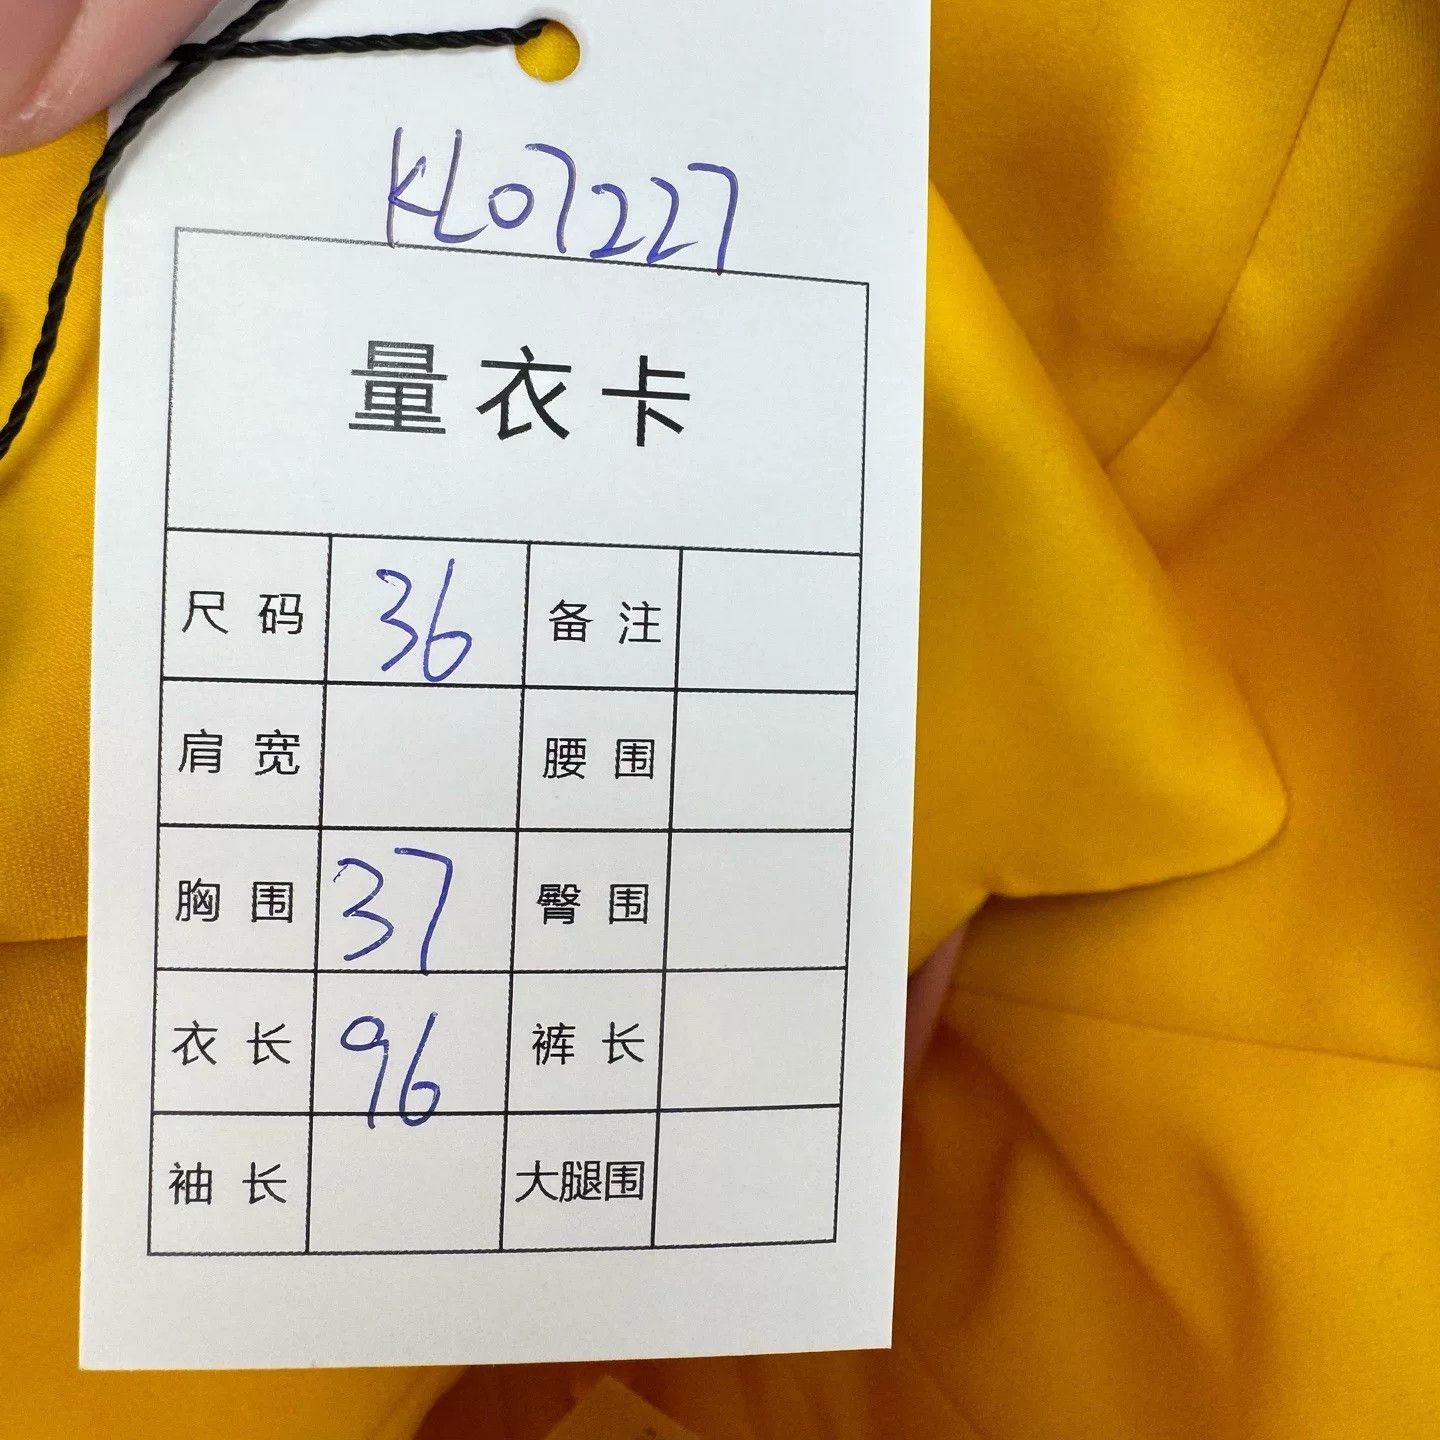 KL07227
量衣卡
尺码 36 备注
肩宽 腰围
胸围 37 臀围
衣长 96 裤长
袖长 大腿围